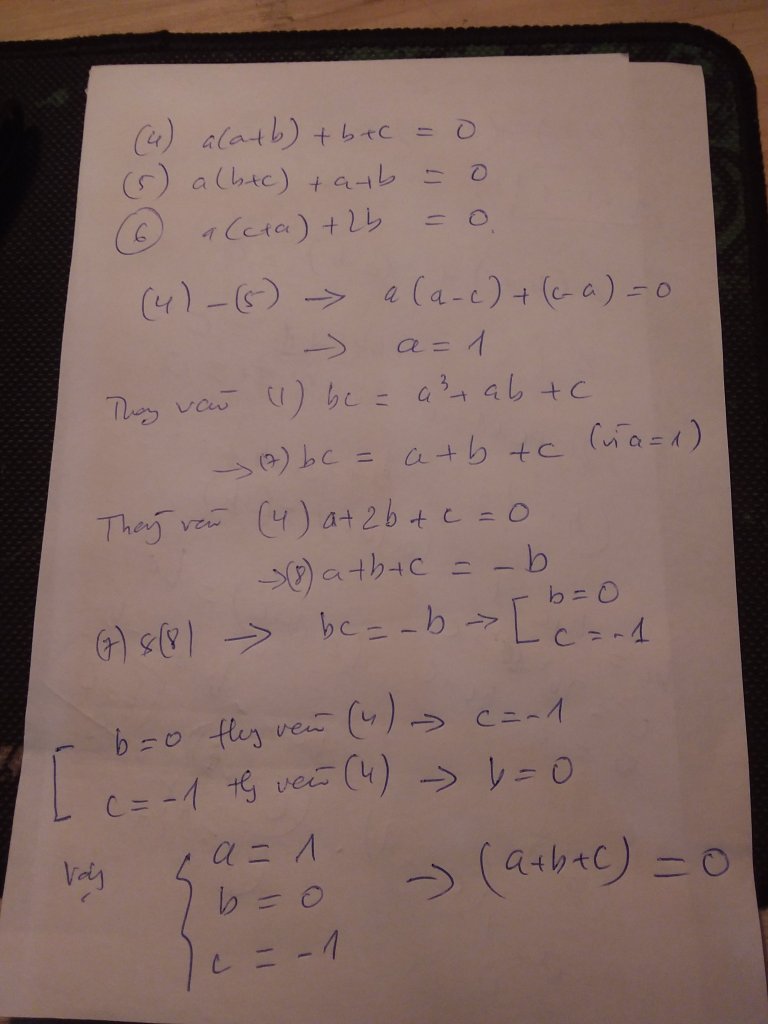 (4) a(a+b) + b+c = 0
(5) a(b+c) + a+b = 0
(6) a(c+a) + 2b = 0.
(4) - (5) → a(a-c) + (c-a) = 0
→ a = 1
Thay vào (1) bc = a³ + ab + c
→ (7) bc = a + b + c (vì a = 1)
Thay vào (4) a + 2b + c = 0
→ (8) a+b+c = -b
(7) & (8) → bc = -b → [ b = 0
c = -1
b = 0 thay vào (4) → c = -1
c = -1 vào (4) → b = 0
Vậy { a = 1 → (a+b+c) = 0
b = 0
c = -1